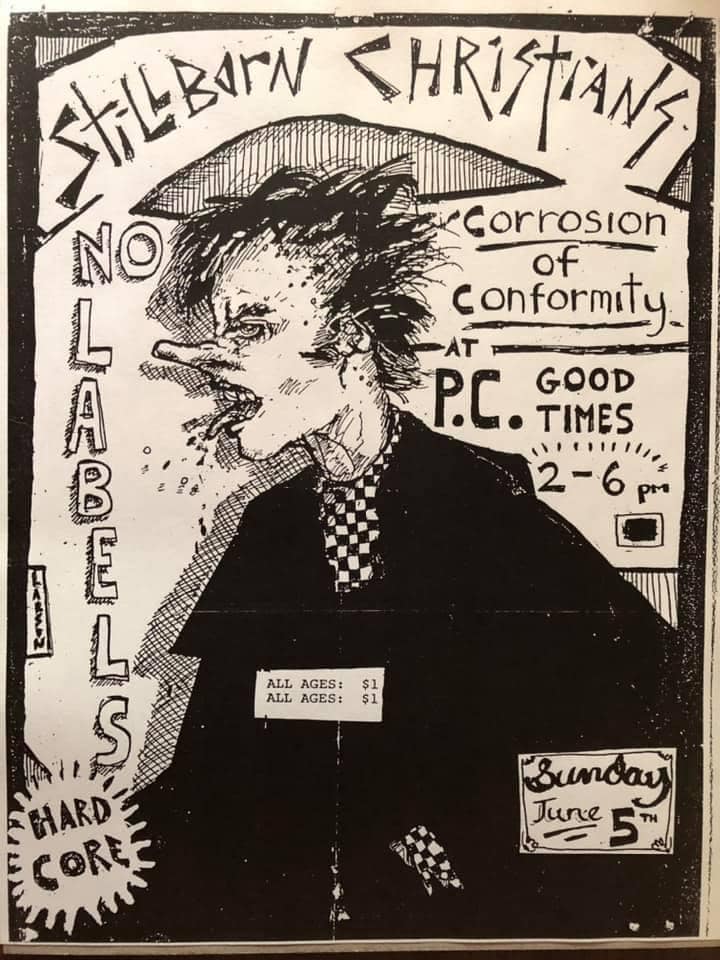 StiLLBorN CHRiSTIANS
NO
LABELS
Corrosion
of
Conformity
AT
P.C. GOOD
TIMES
2-6 pm
LARSON
ALL AGES: $1
ALL AGES: $1
Sunday
June 5TH
HARD
CORE